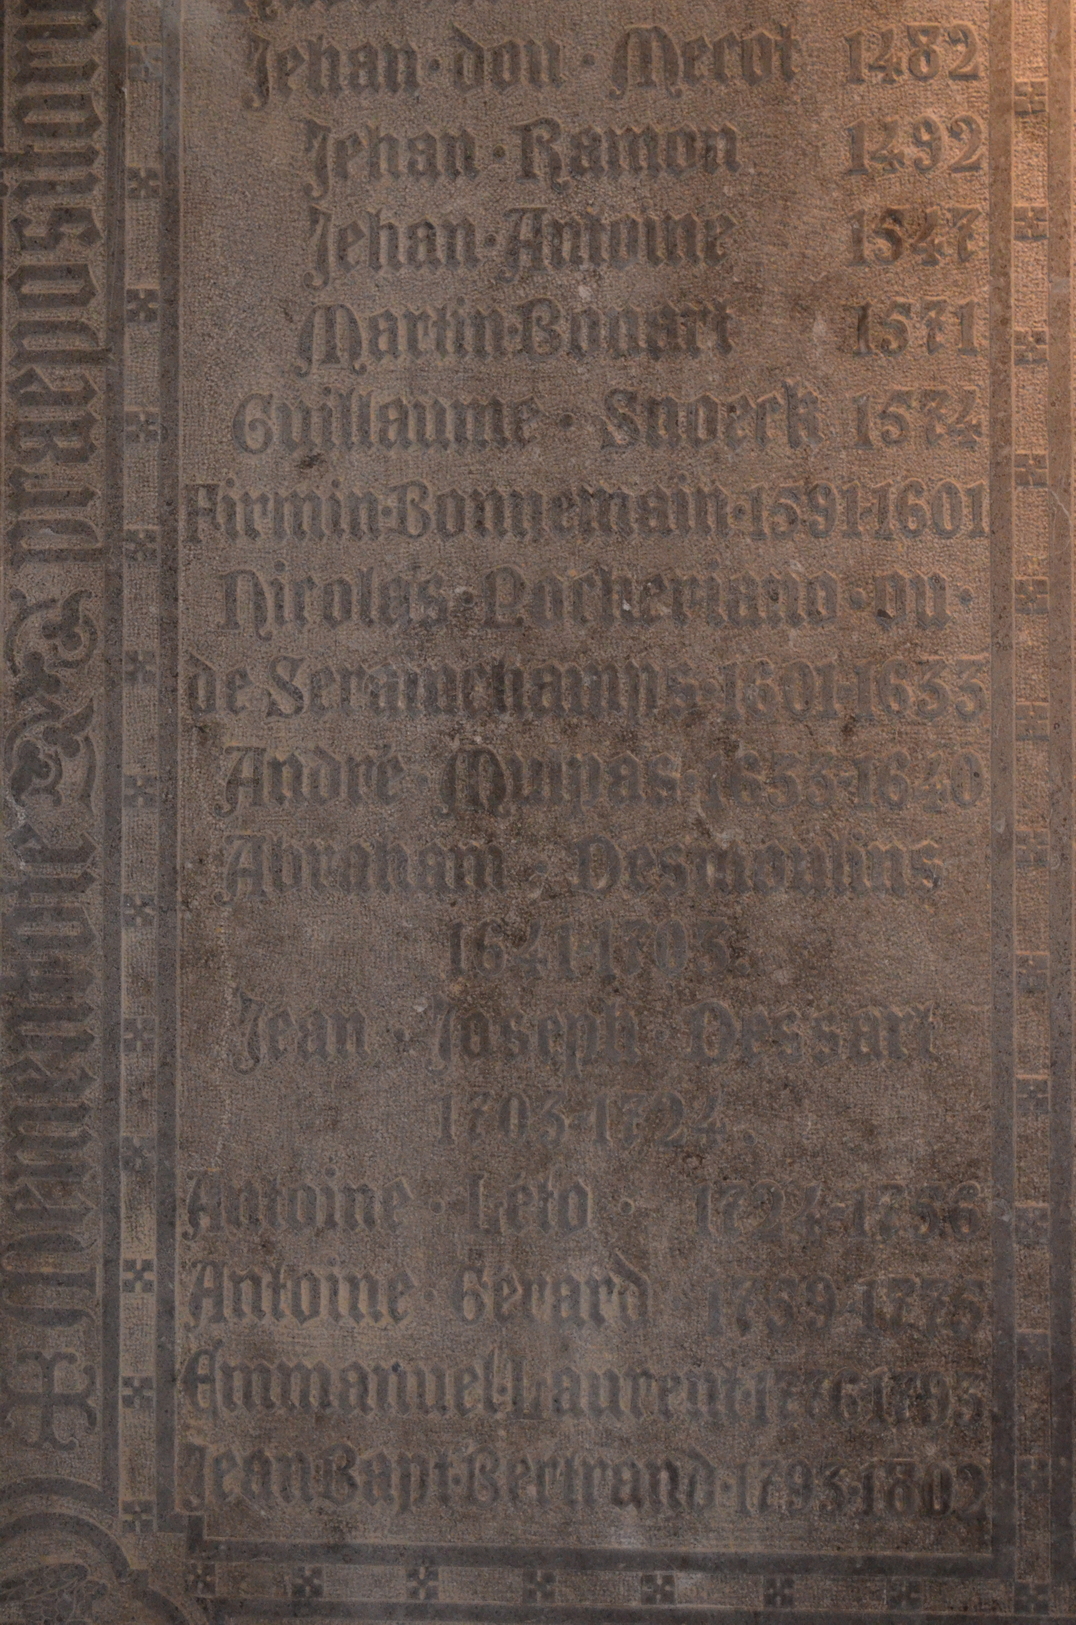 Jehan · dou · Mecot 1482
Jehan · Ramon 1492
Jehan · Antoine 1547
Martin · Bouart 1571
Guillaume · Snoeck 1574
Firmin · Bonnemain · 1591-1601
Nicolas · Locheriand · ou ·
de Serainchamps · 1601-1633
André · Munpas · 1633-1640
Abraham · Desmoulins
1641-1703.
Jean · Joseph · Dessart
1703-1724.
Antoine · Léto · 1724-1756
Antoine · Gérard · 1759-1775
Emmanuel · Laurent · 1776 1793
Jean Bapt · Bertrand · 1793-1802